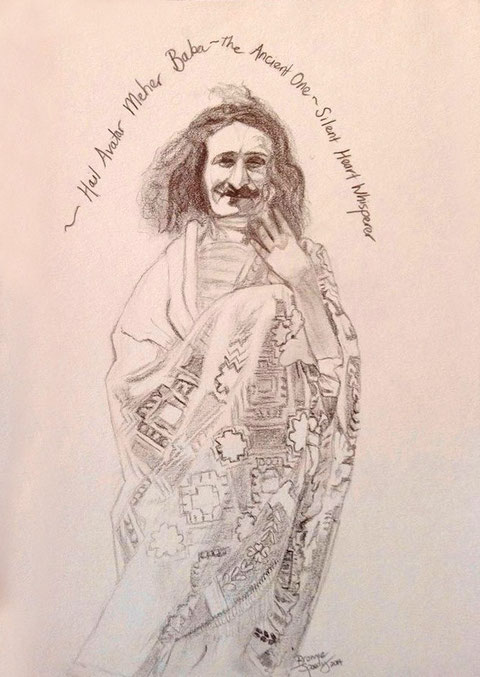 ~ Hail Avatar Meher Baba ~ The Ancient One ~ Silent Heart Whisperer